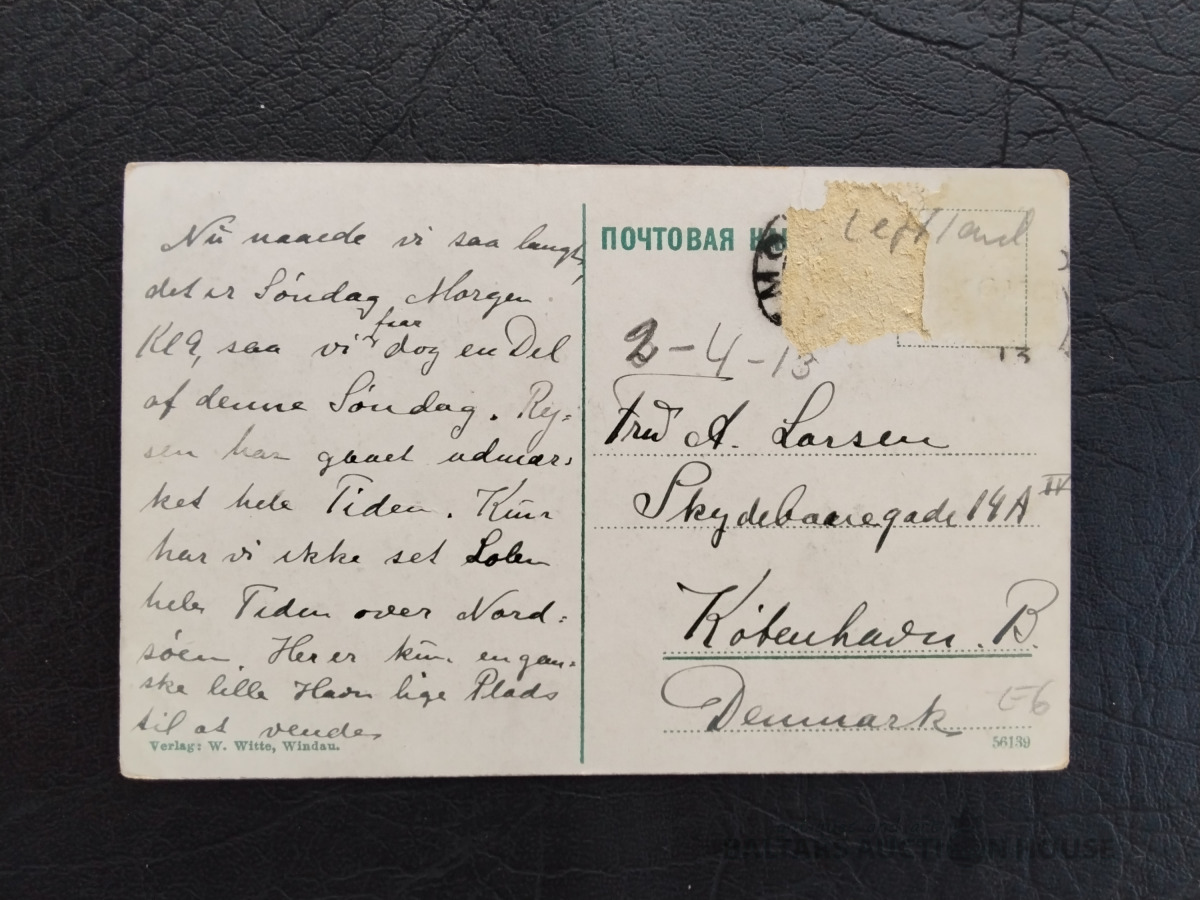 Nu naaede vi saa langt,
det er Søndag Morgen
Kl 9, saa vi faar dog en Del
af denne Søndag. Rej=
sen har gaaet udmær=
ket hele Tiden. Kun
har vi ikke set Solen
hele Tiden over Nord=
søen. Her er kun en gan=
ske lille Havn lige Plads
til at vende
Verlag: W. Witte, Windau.
ПОЧТОВАЯ
Lettland
2-4-13
13
Fru A. Larsen
Skydebanegade 14A IV
København. B.
Denmark
E6
56139
BALTARS AUCTION HOUSE